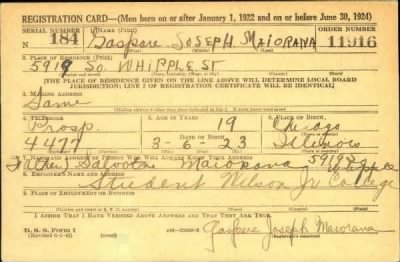 REGISTRATION CARD—(Men born on or after January 1, 1922 and on or before June 30, 1924)
SERIAL NUMBER 1. NAME (Print) ORDER NUMBER
N 184 Gaspare Joseph Maiorana 11916
2. PLACE OF RESIDENCE (Print)
5919 So. WHIPPLE ST
[THE PLACE OF RESIDENCE GIVEN ON THE LINE ABOVE WILL DETERMINE LOCAL BOARD
JURISDICTION; LINE 2 OF REGISTRATION CERTIFICATE WILL BE IDENTICAL]
3. MAILING ADDRESS
Same
4. TELEPHONE 5. AGE IN YEARS 6. PLACE OF BIRTH
Prosp. 19 Chicago
4477 DATE OF BIRTH
3-6-23 Illinois
7. NAME AND ADDRESS OF PERSON WHO WILL ALWAYS KNOW YOUR ADDRESS
Salvatore Maiorana 5919 So. Whipple
8. EMPLOYER'S NAME AND ADDRESS
Student Wilson Jr College
9. PLACE OF EMPLOYMENT OR BUSINESS
I AFFIRM THAT I HAVE VERIFIED ABOVE ANSWERS AND THAT THEY ARE TRUE.
D. S. S. Form 1
Gaspare Joseph Maiorana